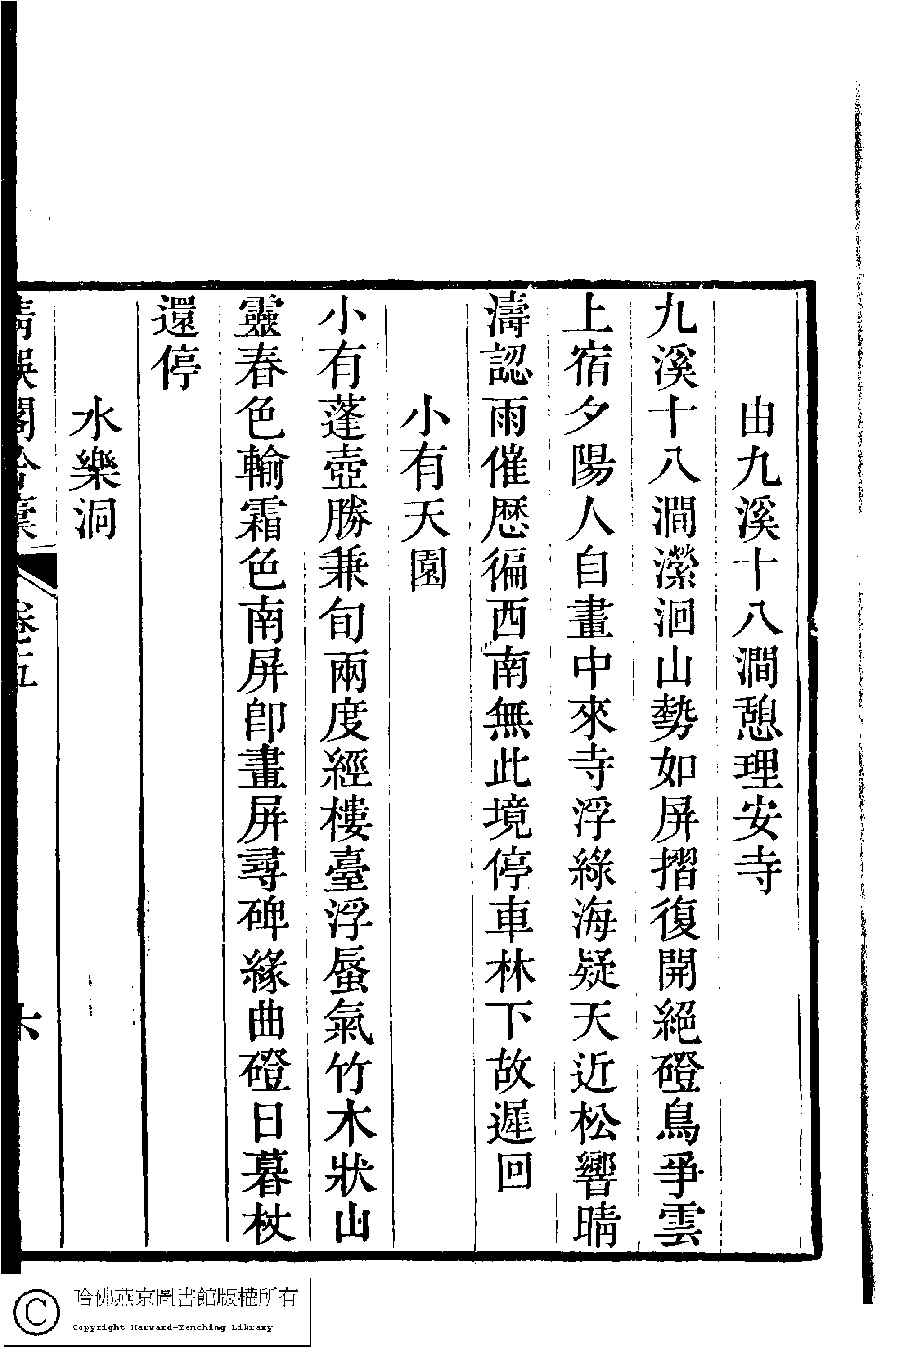 由九溪十八澗憩理安寺
九溪十八澗瀠洄山勢如屏摺復開絕磴鳥爭雲
上宿夕陽人自畫中來寺浮綠海疑天近松響晴
濤認雨催歷徧西南無此境停車林下故遲回
小有天園
小有蓬壺勝兼旬兩度經樓臺浮蜃氣竹木狀山
靈春色輸霜色南屏卽畫屏尋碑緣曲磴日暮杖
還停
水樂洞
卷五
六
哈佛燕京圖書館版權所有
Copyright Harvard-Yenching Library